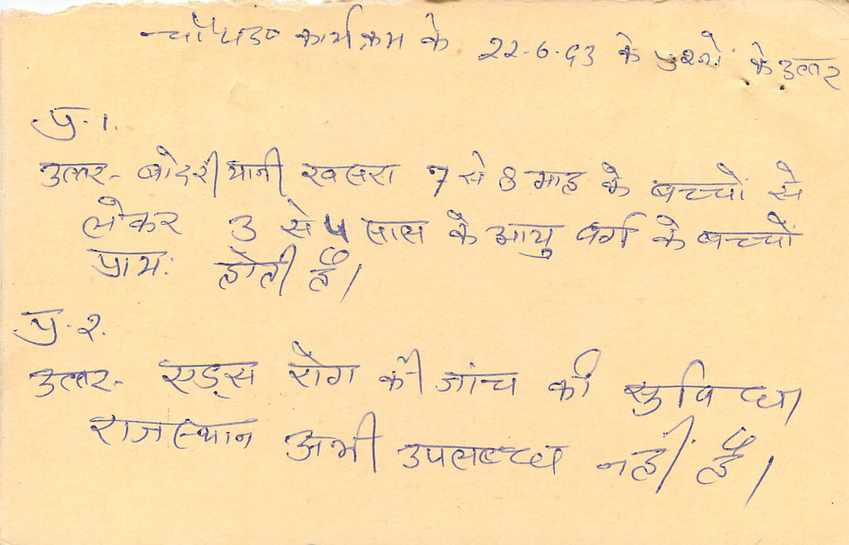 चौपाड कार्यक्रम के 22-6-93 के प्रश्नों के उत्तर
प्र.1.
उत्तर- बोदरी यानी खसरा 7 से 8 माह के बच्चों से
लेकर 3 से 4 साल के आयु वर्ग के बच्चों
प्राय: होती है।
प्र.2.
उत्तर- एड्स रोग की जांच की सुविधा
राजस्थान अभी उपलब्ध नहीं है।